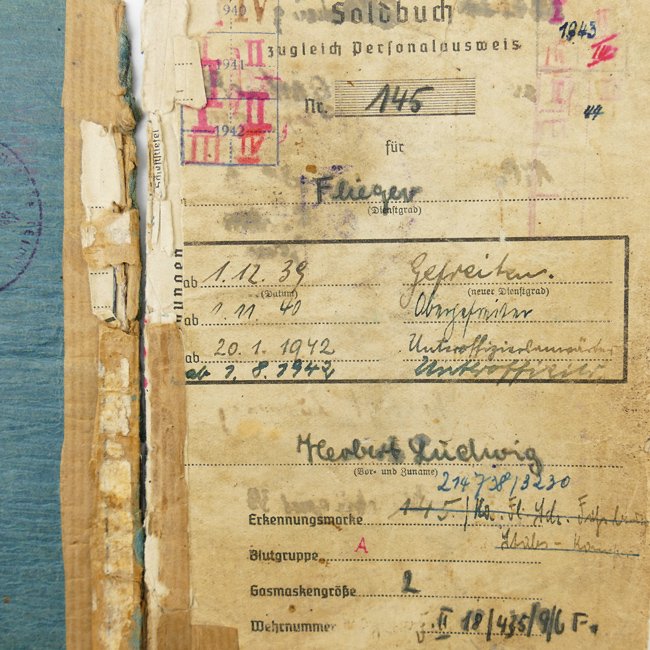 Soldbuch
zugleich Personalausweis
1940 IV
1941 II
1942 II
III IV
I
1943
IV
44
Nr. 145
für
Flieger
(Dienstgrad)
ab 1.12.39 Gefreiten.
(Datum) (neuer Dienstgrad)
ab 1.11.40 Obergefreiter
ab 20.1.1942 Unteroffizieranwärter
ab 1.8.1942 Unteroffizier
Herbert Ludwig
(Vor- und Zuname)
214738/3230
Erkennungsmarke 145
Blutgruppe A
Gasmaskengröße 2
Wehrnummer II 18/435/9/6 F.